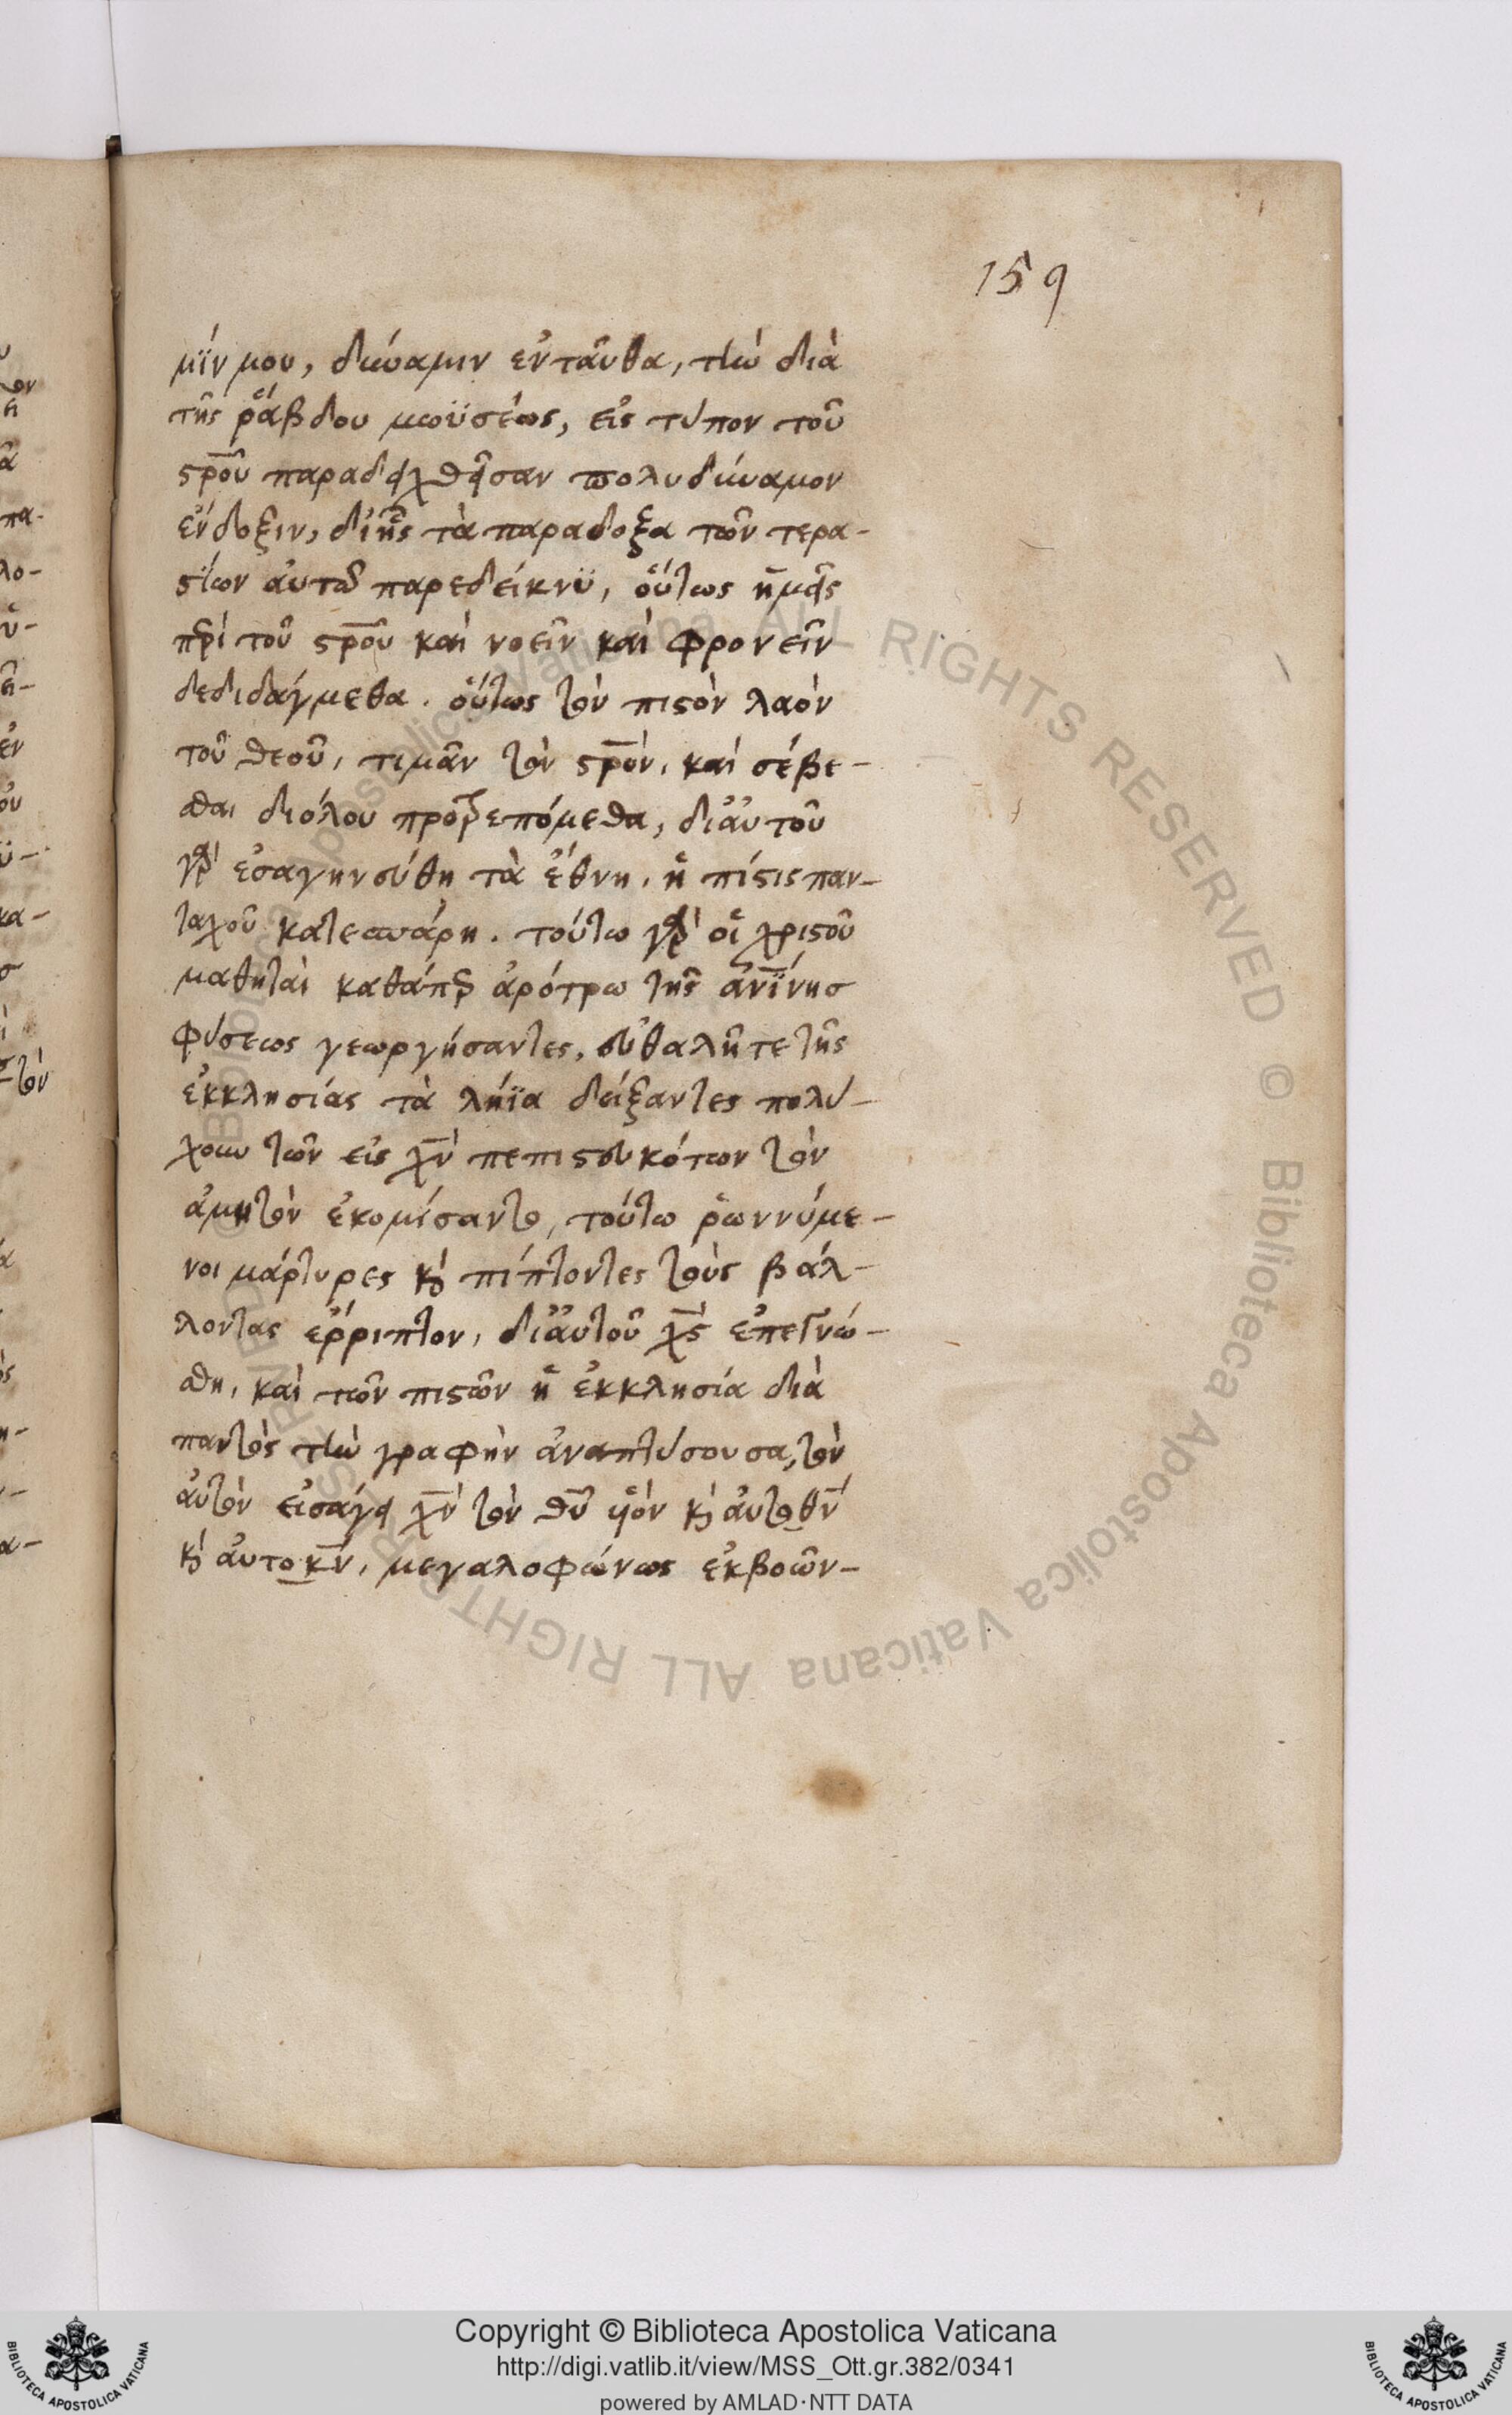 159
μΐν μου, δύναμιν ἐνταῦθα, τὴν διὰ
τῆς ῥάβδου μωϋσέως, εἰς τύπον τοῦ
σρ̅οῦ παραδειχθεῖσαν πολυδύναμον
ἔνδοξιν, δι' ἧς τὰ παράδοξα τῶν τερα-
στίων αὐτῶ παρεδείκνϋ, οὕτως ἡμεῖς
περὶ τοῦ σρ̅οῦ καὶ νοεῖν καὶ φρονεῖν
δεδιδάγμεθα. οὕτως τὸν πιστὸν λαὸν
τοῦ θεοῦ, τιμᾶν τὸν σρ̅ον, καὶ σέβε-
σθαι διόλου προτρεπόμεθα, δι' αὐτοῦ
γὰρ ἐσαγηνεύθη τὰ ἔθνη, ἡ πίστις παν-
ταχοῦ κατεσπάρη. τούτω γὰρ οἱ χριστοῦ
μαθηταὶ καθάπερ ἀρότρω τῆς ἀν̅ΐνησ
φύσεως γεωργήσαντες, εὐθαλῆ τε τῆς
ἐκκλησίας τὰ λήϊα δείξαντες πολύ-
χουν τῶν εἰς χ̅ν πεπιστευκότων τὸν
ἀμητὸν ἐκομίσαντο, τούτω ῥωννύμε-
νοι μάρτυρες κ̀ πίπτοντες τοὺς βάλ-
λοντας ἔρριπτον, δι' αὐτοῦ χ̅ς ἐπεγνώ-
σθη, καὶ τῶν πιστῶν ἡ ἐκκλησία διὰ
παντὸς τὴν γραφὴν ἀναπτύσουσα, τὸν
αὐτὸν εἰσάγει χ̅ν τὸν θ̅υ υἱὸν κ̀ αὐτοθ̅ν
κ̀ αὐτοκ̅ν, μεγαλοφώνως ἐκβοῶν-
Copyright © Biblioteca Apostolica Vaticana
http://digi.vatlib.it/view/MSS_Ott.gr.382/0341
powered by AMLAD·NTT DATA